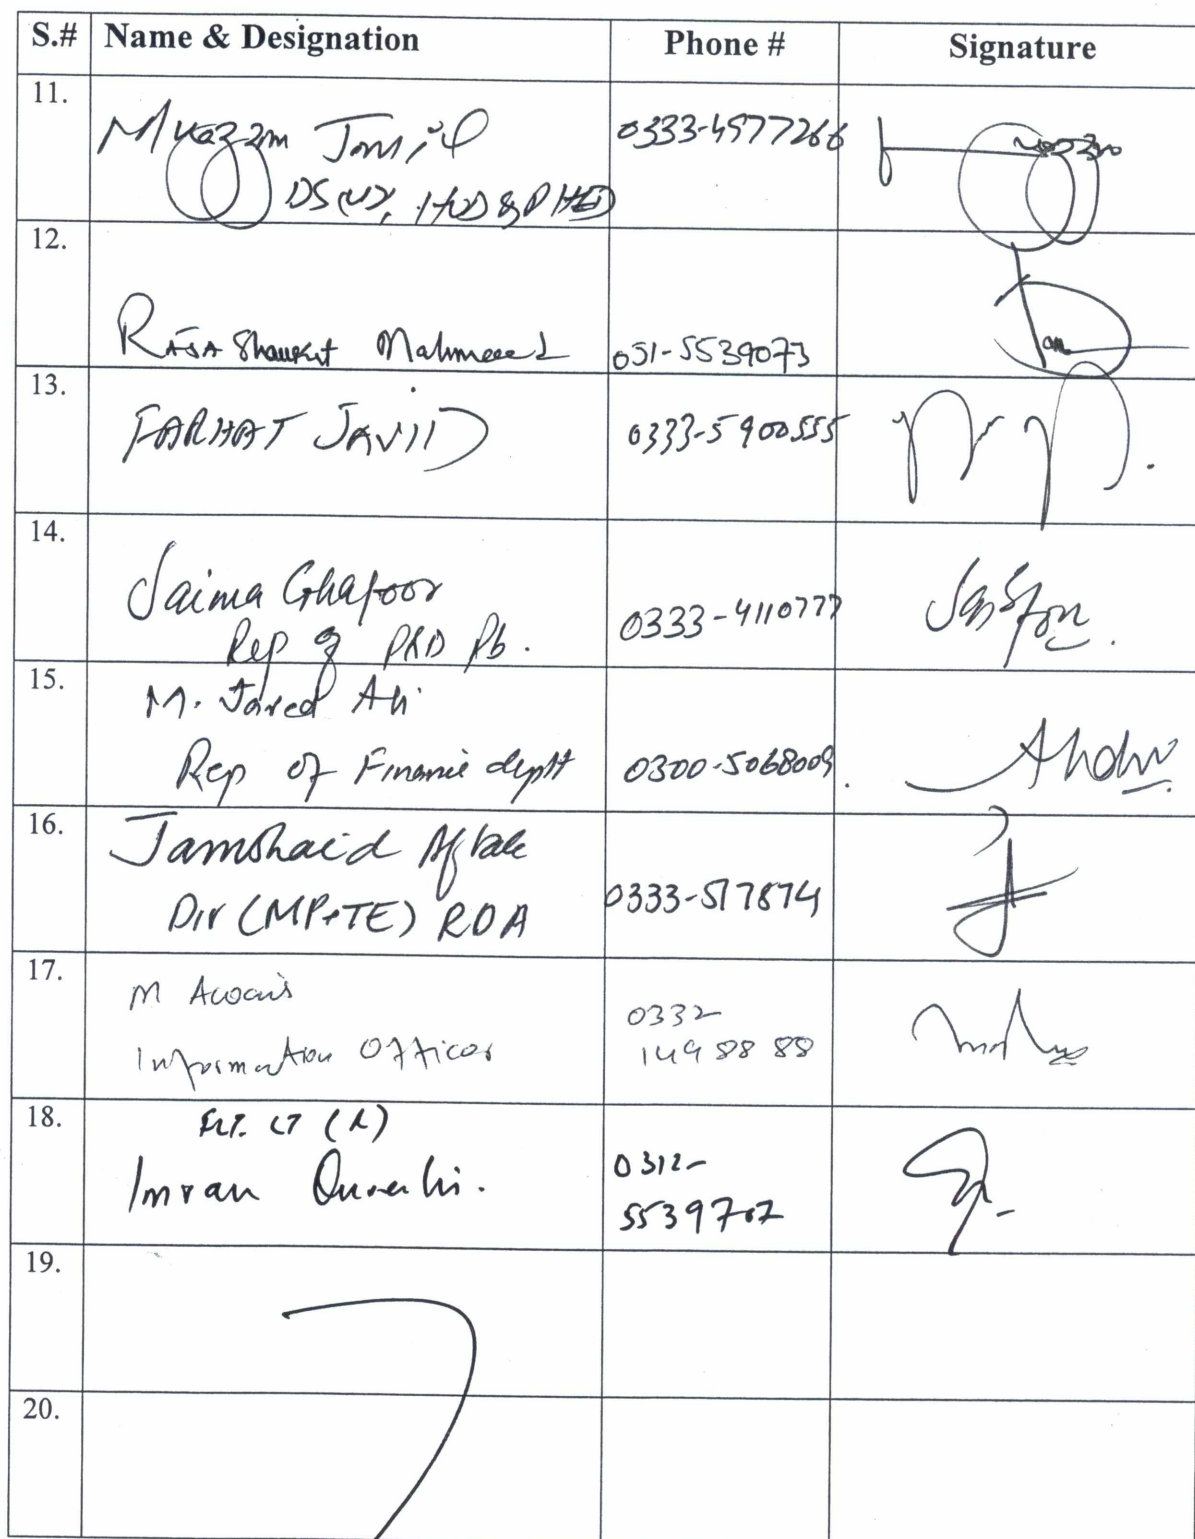 S.# Name & Designation Phone # Signature
11. Muazzam Jamil 0333-4977266
DS (UD), HUD & PHED
12.
Raja Shaukat Mahmood 051-5539073
13.
FARHAT JAVIID 0333-5900555
14.
Saima Ghafoor 0333-4110777
Rep of P&D Pb.
15. M. Javed Ali
Rep of Finance deptt 0300-5068009.
16. Jamshaid Aftab
Dir (MP&TE) RDA 0333-517874
17. M Awais 0332
Information Officer 1498888
18. FLT. LT (R)
Imran Qureshi. 0312-
5539707
19.
20.